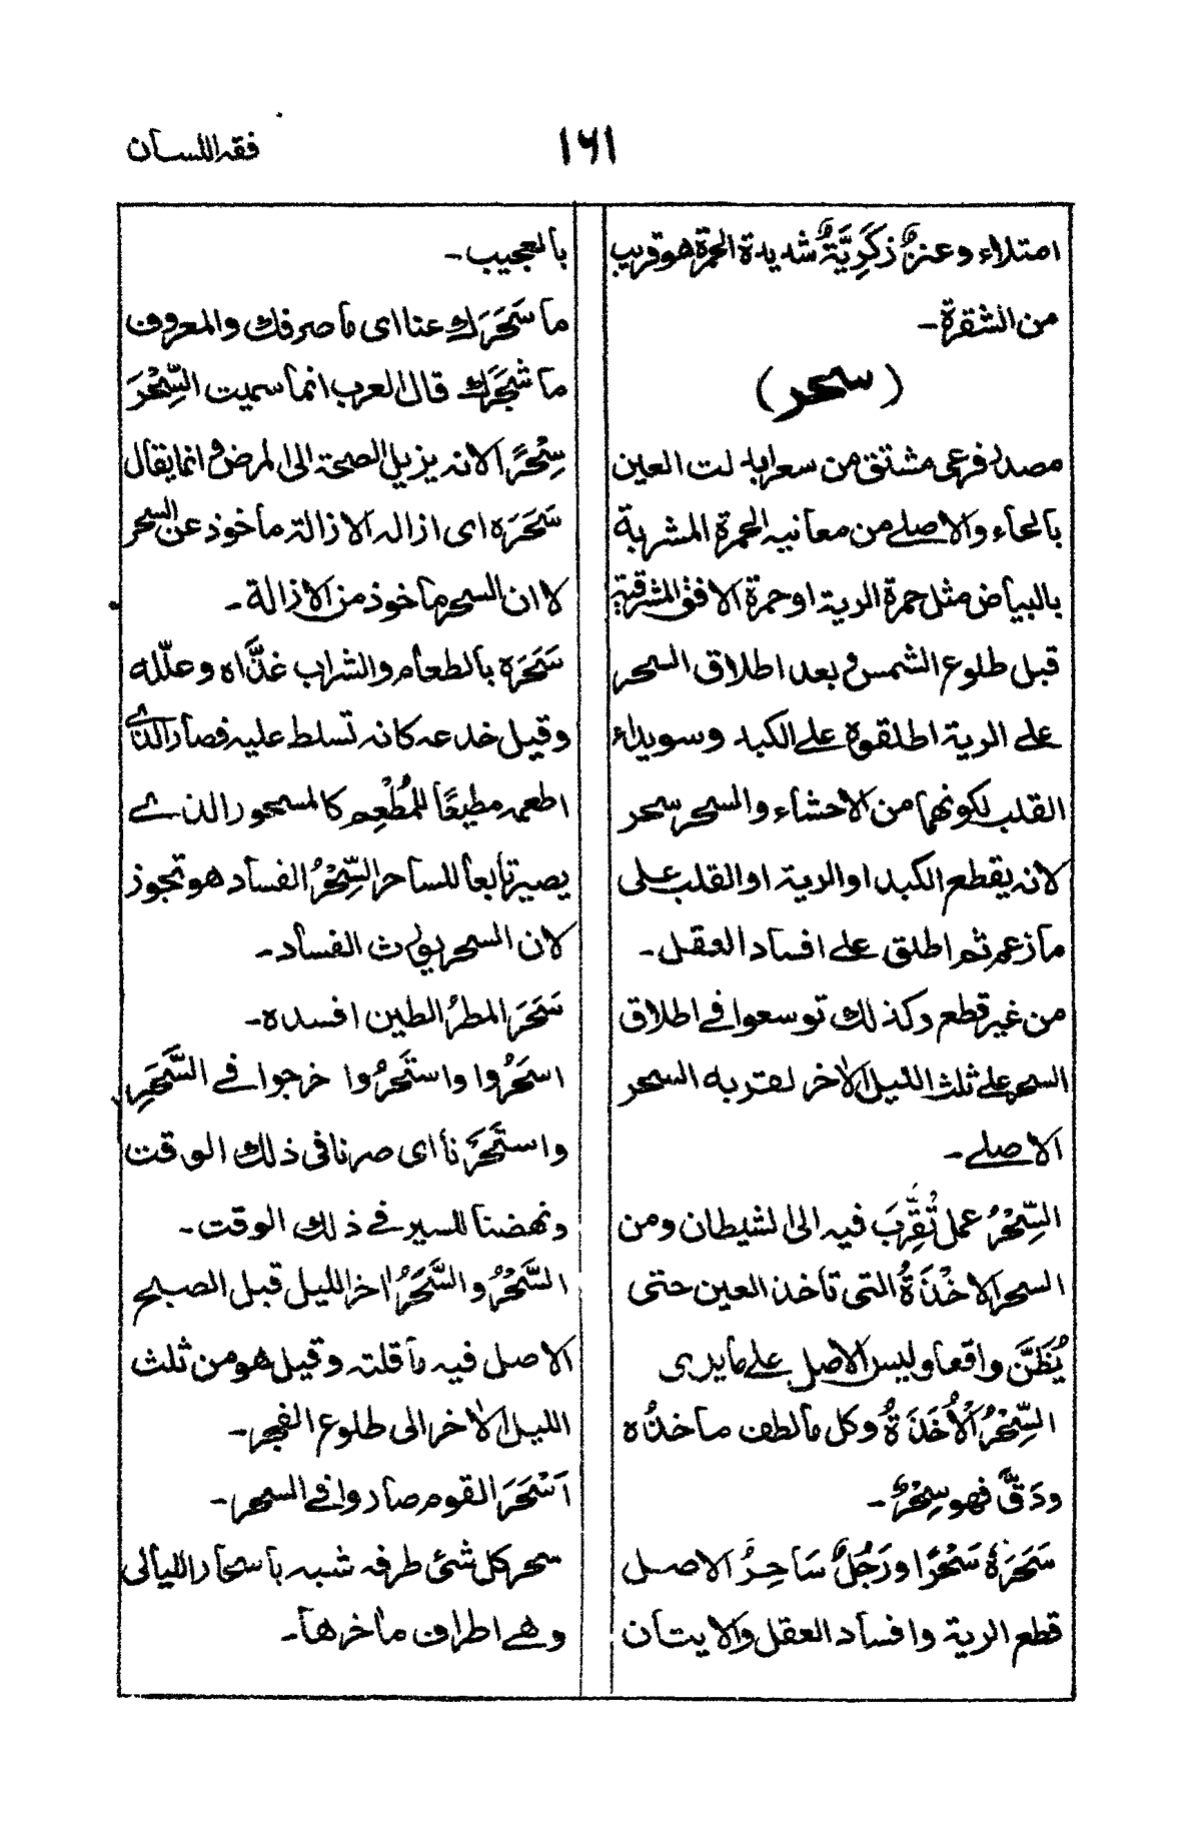 فقه اللسان
١٦١
امتلاء وعنزٌ ذَكَرِيَّةٌ شديدة الحمرة هو قريب
من الشقرة۔
(سحر)
مصدر فرعى مشتق من سعر ابدلت العين
بالحاء والاصلے من معانيه الحمرة المشربة
بالبياض مثل حمرة الرية او حمرة الافق المشرقية
قبل طلوع الشمس و بعد اطلاق السحر
علے الرية اطلقوه علے الكبد وسويداء
القلب لكونهما من الاحشاء والسحر سحر
لانه يقطع الكبد او الرية او القلب على
ما زعم ثم اطلق علے افساد العقل۔
من غير قطع وكذلك توسعوا فے اطلاق
السحر علے ثلث الليل الاخر لقربه السحر
الاصلے۔
السِّحْرُ عمل تُقُرِّبَ فيه الى الشيطان ومن
السحر الاخْذَةُ التى تأخذ العين حتى
يُظَنَّ واقعا وليس الاصل علے مايرى
السِّحْرُ الْاُخْذَةُ وكل مالطف مأخذه
ودَقَّ فهو سِحْرٌ۔
سَحَرَهُ سَحْرًا ورَجُلٌ سَاحِرٌ الاصل
قطع الرية وافساد العقل والايتان
بالعجيب۔
ما سَحَرَكَ عنا اى ما صرفك والمعروف
ما شَجَرَكَ قال العرب انما سميت السِّحْرَ
سِحْرًا لانه يزيل الصحة الى المرض و انما يقال
سَحَرَه اى ازاله الازالة ماخوذ عن السحر
لا ان السحر ماخوذ من الازالة۔
سَحَرَه بالطعام والشراب غذَّاه وعلّله
وقيل خدعه كانه تسلط عليه فصار الذے
اطعمه مطيعًا للمُطْعِم كالمسحور الذے
يصير تابعا للساحر السِّحْرُ الفساد هو تجوز
لان السحر يورث الفساد۔
سَحَرَ المطرُ الطين افسده۔
اسحَرُوا واستَحَرُوا خرجوا فے السَّحَرِ
واستَحَرْنا اى صرنا فى ذلك الوقت
ونهضنا للسير فے ذلك الوقت۔
السَّحْرُ والسَّحَرُ اخر الليل قبل الصبح
الاصل فيه ما قلته وقيل هو من ثلث
الليل الاخر الى طلوع الفجر۔
اَسْحَرَ القوم صاروا فے السحر۔
سحر كل شئ طرفه شبه باسحار الليالى
وهے اطراف ماخرها۔